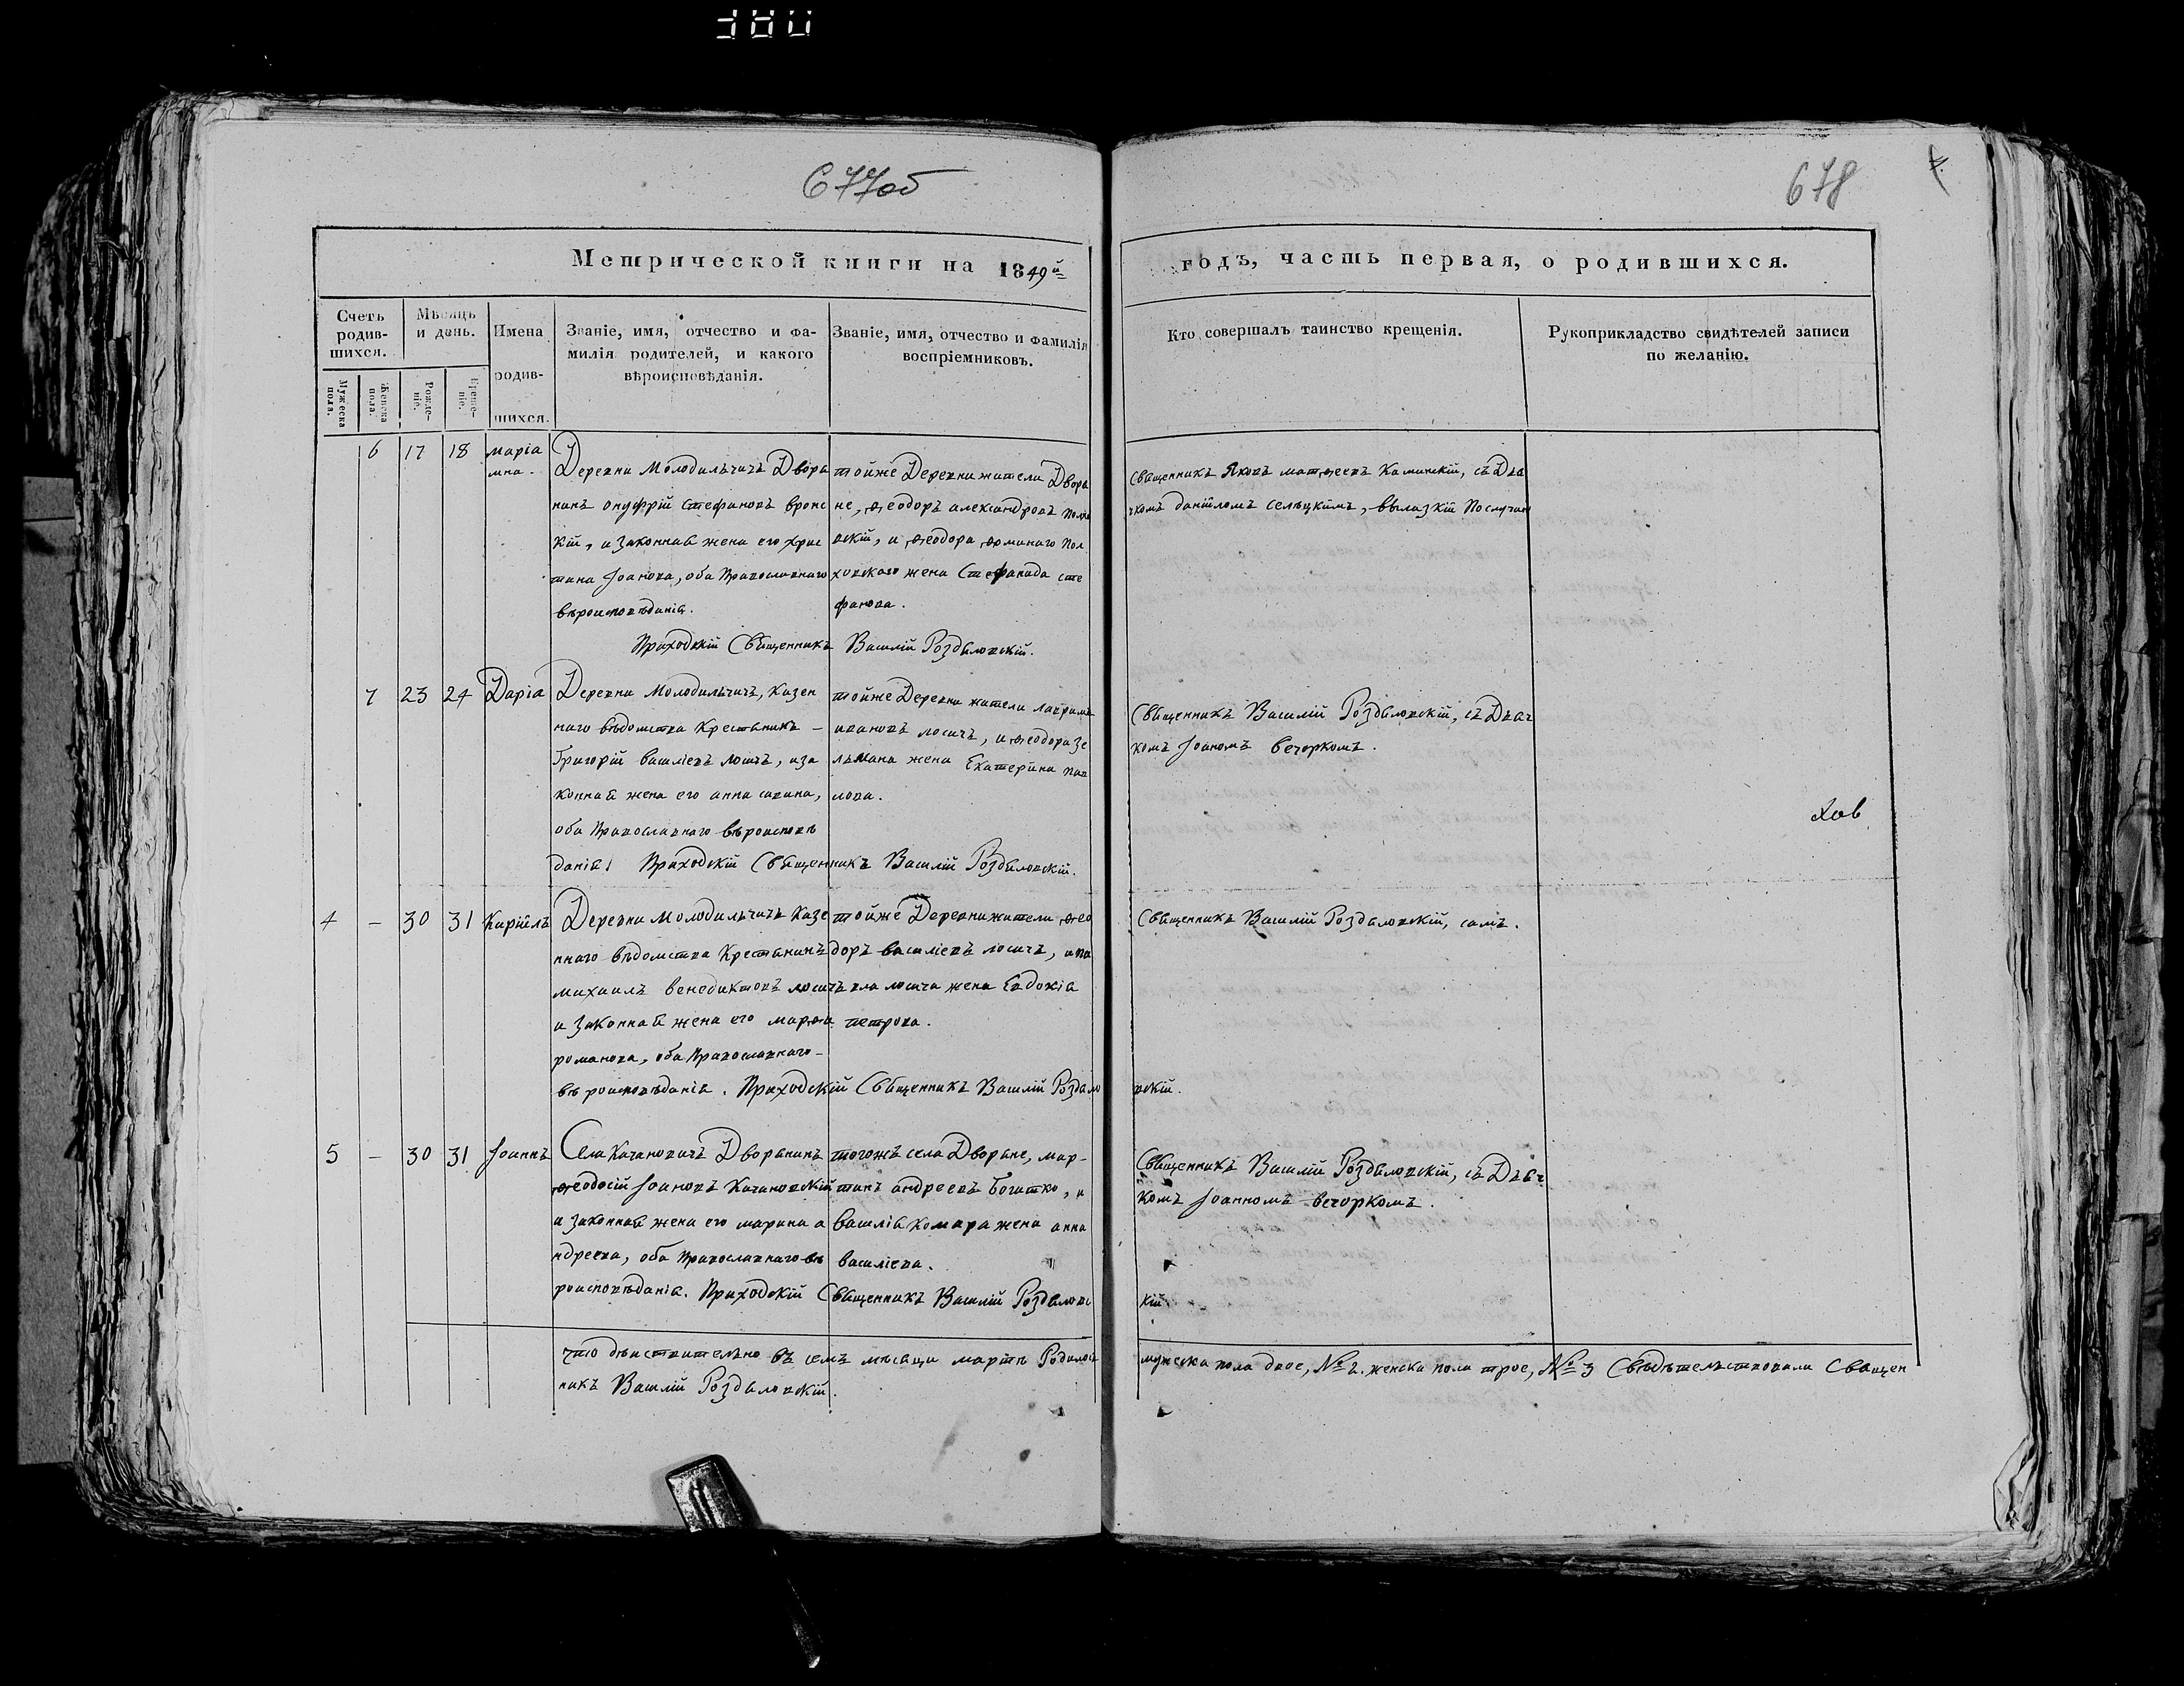 677об
678
Метрической книги на 1849й
годъ, часть первая, о родившихся.
Счетъ родив-шихся.
Мѣсяцъ и день.
Имена родив-шихся.
Званіе, имя, отчество и фа-
милія родителей, и какого
вѣроисповѣданія.
Званіе, имя, отчество и фамилія
воспріемниковъ.
Кто совершалъ таинство крещенія.
Рукоприкладство свидѣтелей записи
по желанію.
Мужеска пола.
Женска пола.
Рожде-ніе.
Креще-ніе.
6 17 18 Маріа
мна
Деревни Молодильчичъ Дворя
нинъ Онуфрій Стефановъ Вронс
кій, и Законная жена его Хрис
тина Іоанова, оба Православнаго
вѣроисповѣданія.
тойже Деревни жители Дворя
не, Ѳеодоръ Александровъ
вскій, и Ѳеодора
ховскаго жена Стефанида Сте
фанова.
Приходскій Священникъ Василій Роздяловскій.
Священникъ Яковъ Матѳеевъ Каминскій, съ Дья
чкомъ Даніиломъ Сельцкимъ,
7 23 24 Даріа
Деревни Молодильчичъ, Казен
наго вѣдомства Крестьянинъ –
Григорій Василіевъ Лосичъ, и за
конная жена его Анна Савина,
оба Православнаго вѣроисповѣ
данія. Приходскій Священникъ Василій Роздяловскій.
тойже Деревни жители
Ивановъ Лосичъ, и Ѳеодора Зе
льмана жена Екатерина Пав
лова.
Священникъ Василій Роздяловскій, съ Дьяч
комъ Іоаномъ Вечоркомъ.
4 – 30 31 Кириллъ
Деревни Молодильчичъ Казе
ннаго вѣдомства Крестьянинъ
Михаилъ Венедиктовъ Лосичъ
и Законная жена его Марѳа
Романова, оба Православнаго –
вѣроисповѣданія. Приходскій Священникъ Василій Роздяло
вскій.
тойже Деревни жители Ѳео
доръ Василіевъ Лосичъ, и Па
вла Лосича жена Евдокіа
Петрова.
Священникъ Василій Роздяловскій, самъ.
5 – 30 31 Іоаннъ
Села Качановичъ Дворянинъ
Ѳеодосій Іоановъ Качановскій
и Законная жена его Марина А
ндреева, оба Православнаго вѣ
роисповѣданія. Приходскій Священникъ Василій Роздяловс
кій
тогожъ села Дворяне, Мар-
тинъ Андреевъ Богатко, и
Василія Комара жена Анна
Василіева.
Священникъ Василій Роздяловскій, съ Дьяч
комъ Іоанномъ Вечоркомъ.
что дѣйствительно въ семъ мѣсяци Мартѣ Родилось
мужеска пола двое, № 2. женска пола трое, № 3 Свѣдѣтельствовали Священ
никъ Василій Роздяловскій.